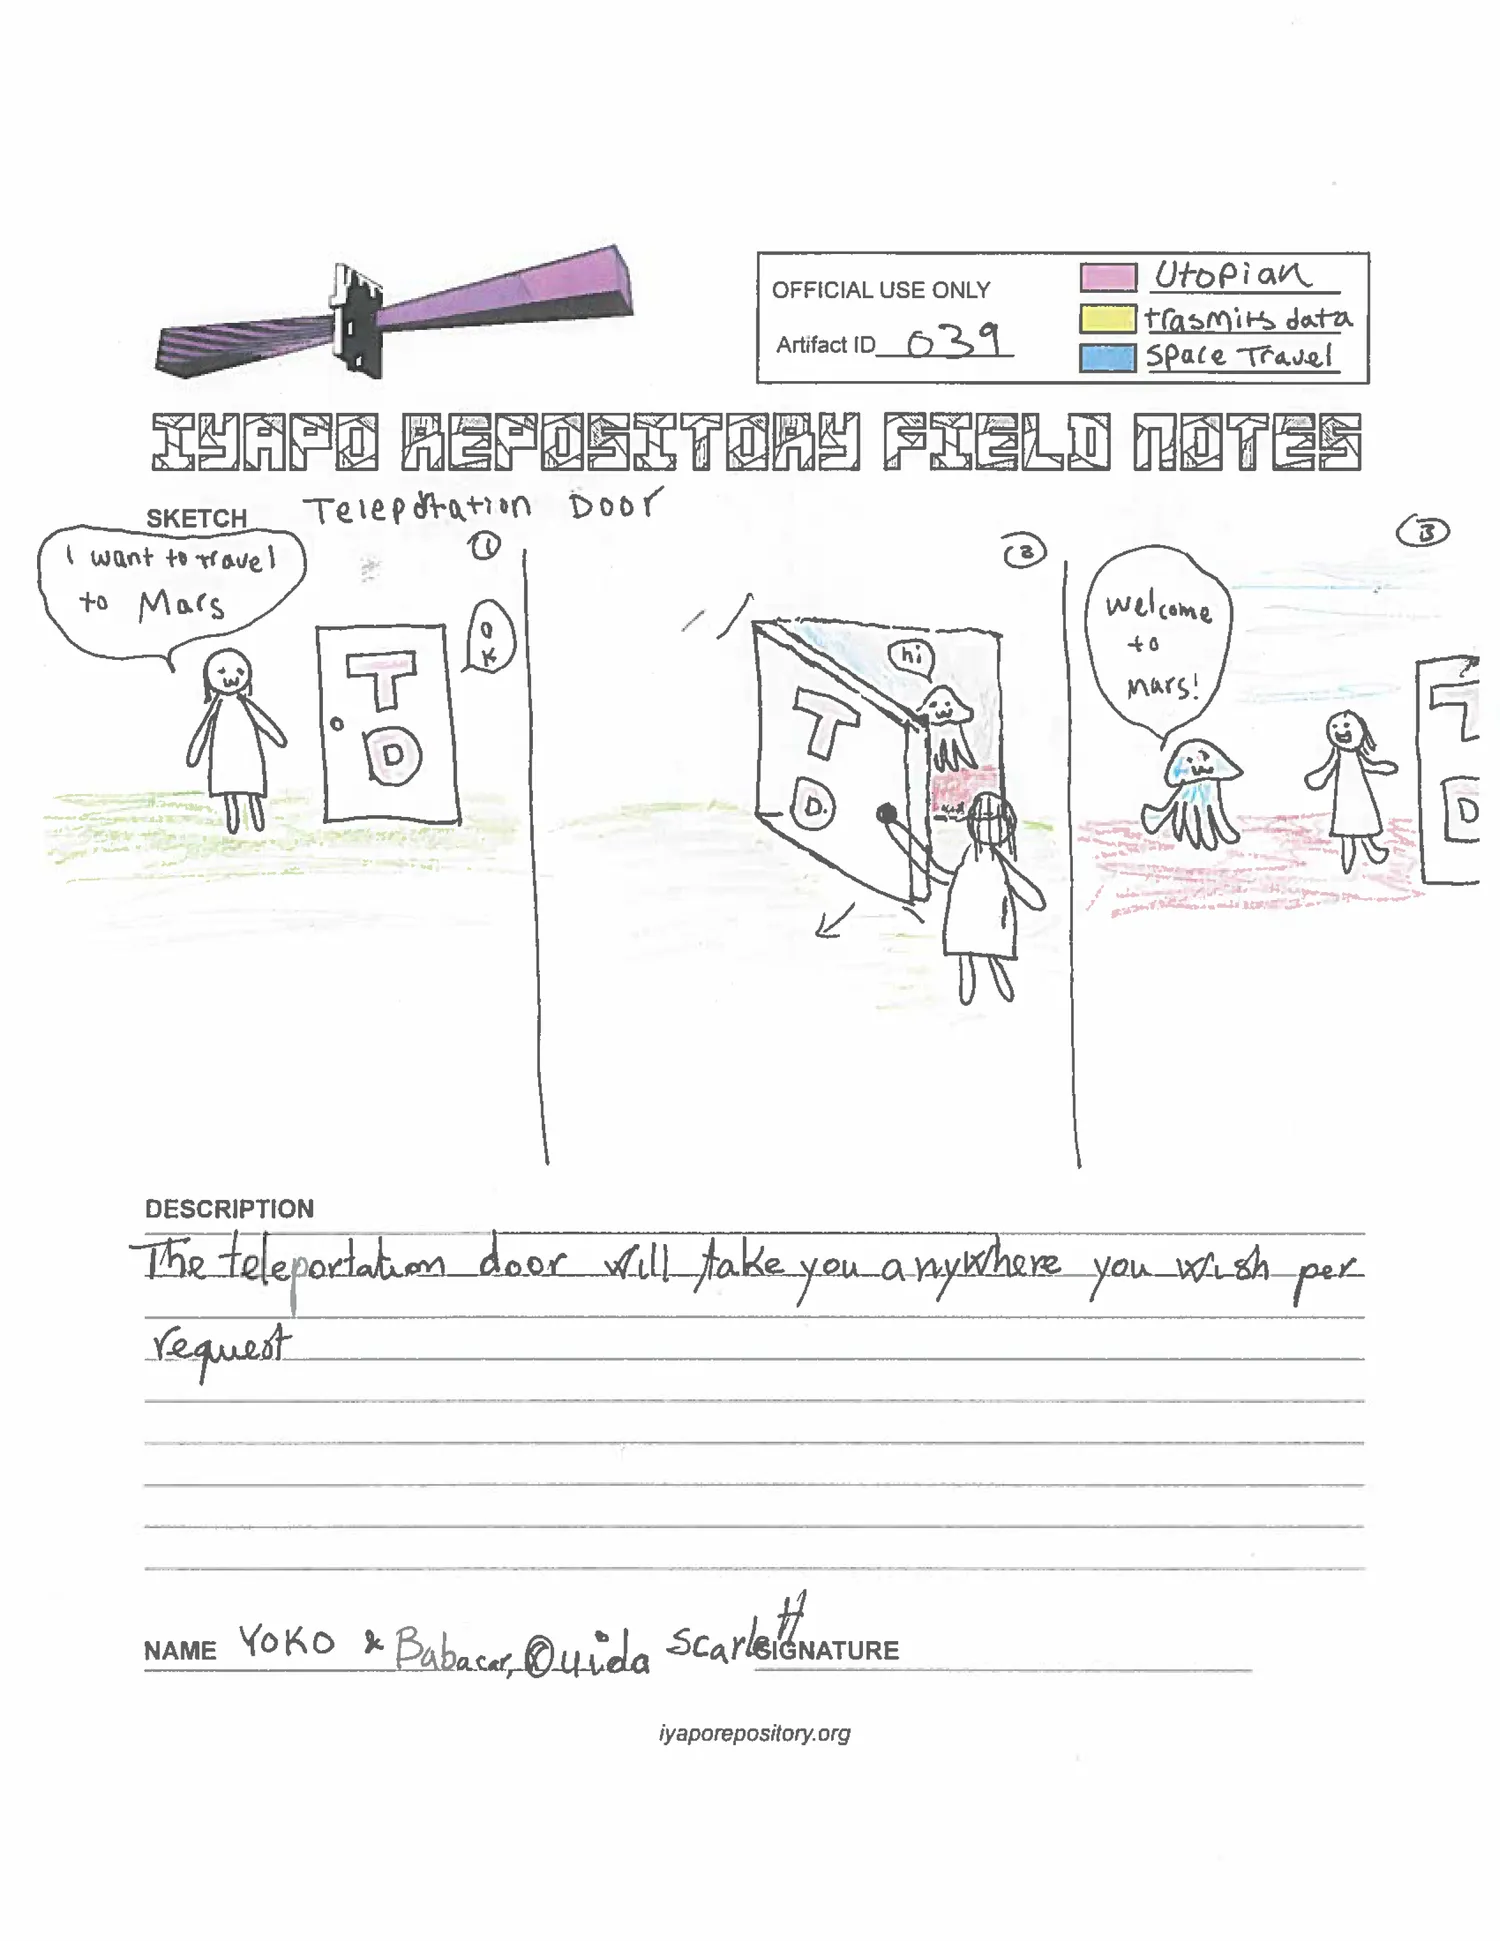 OFFICIAL USE ONLY
Artifact ID 039
Utopian
trasmits data
Space Travel
IYAPO REPOSITORY FIELD NOTES
SKETCH
Teleportation Door
1
I want to travel
to Mars
T
D
O
K
2
hi
T
D
3
Welcome
to
Mars!
T
D
DESCRIPTION
The teleportation door will take you anywhere you wish per
request
NAME YOKO & Babacar, Ouida Scarlett SIGNATURE
iyaporepository.org